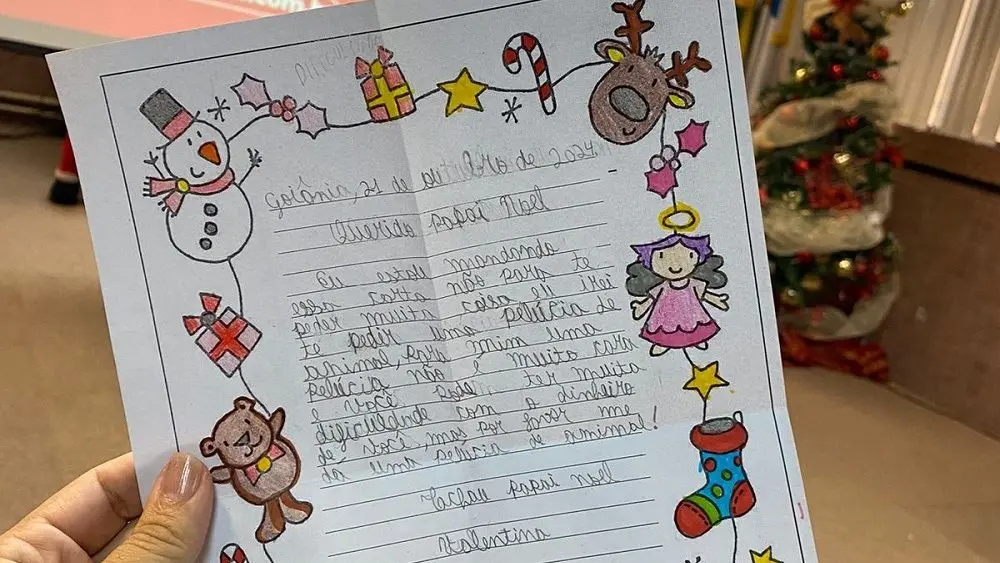 .com.b
Dificuldade
Goiânia, 21 de outubro de 2024
Querido papai Noel
Eu estou mandando
essa carta não para te
peder muita coisa eu irei
te pedir uma pelúcia de
animal, para mim uma
pelúcia não é muito cara
e você pode ter muita
dificuldade com o dinheiro
de você, mas por favor me
da uma pelúcia de animal!
Tachau papai noel
Valentina